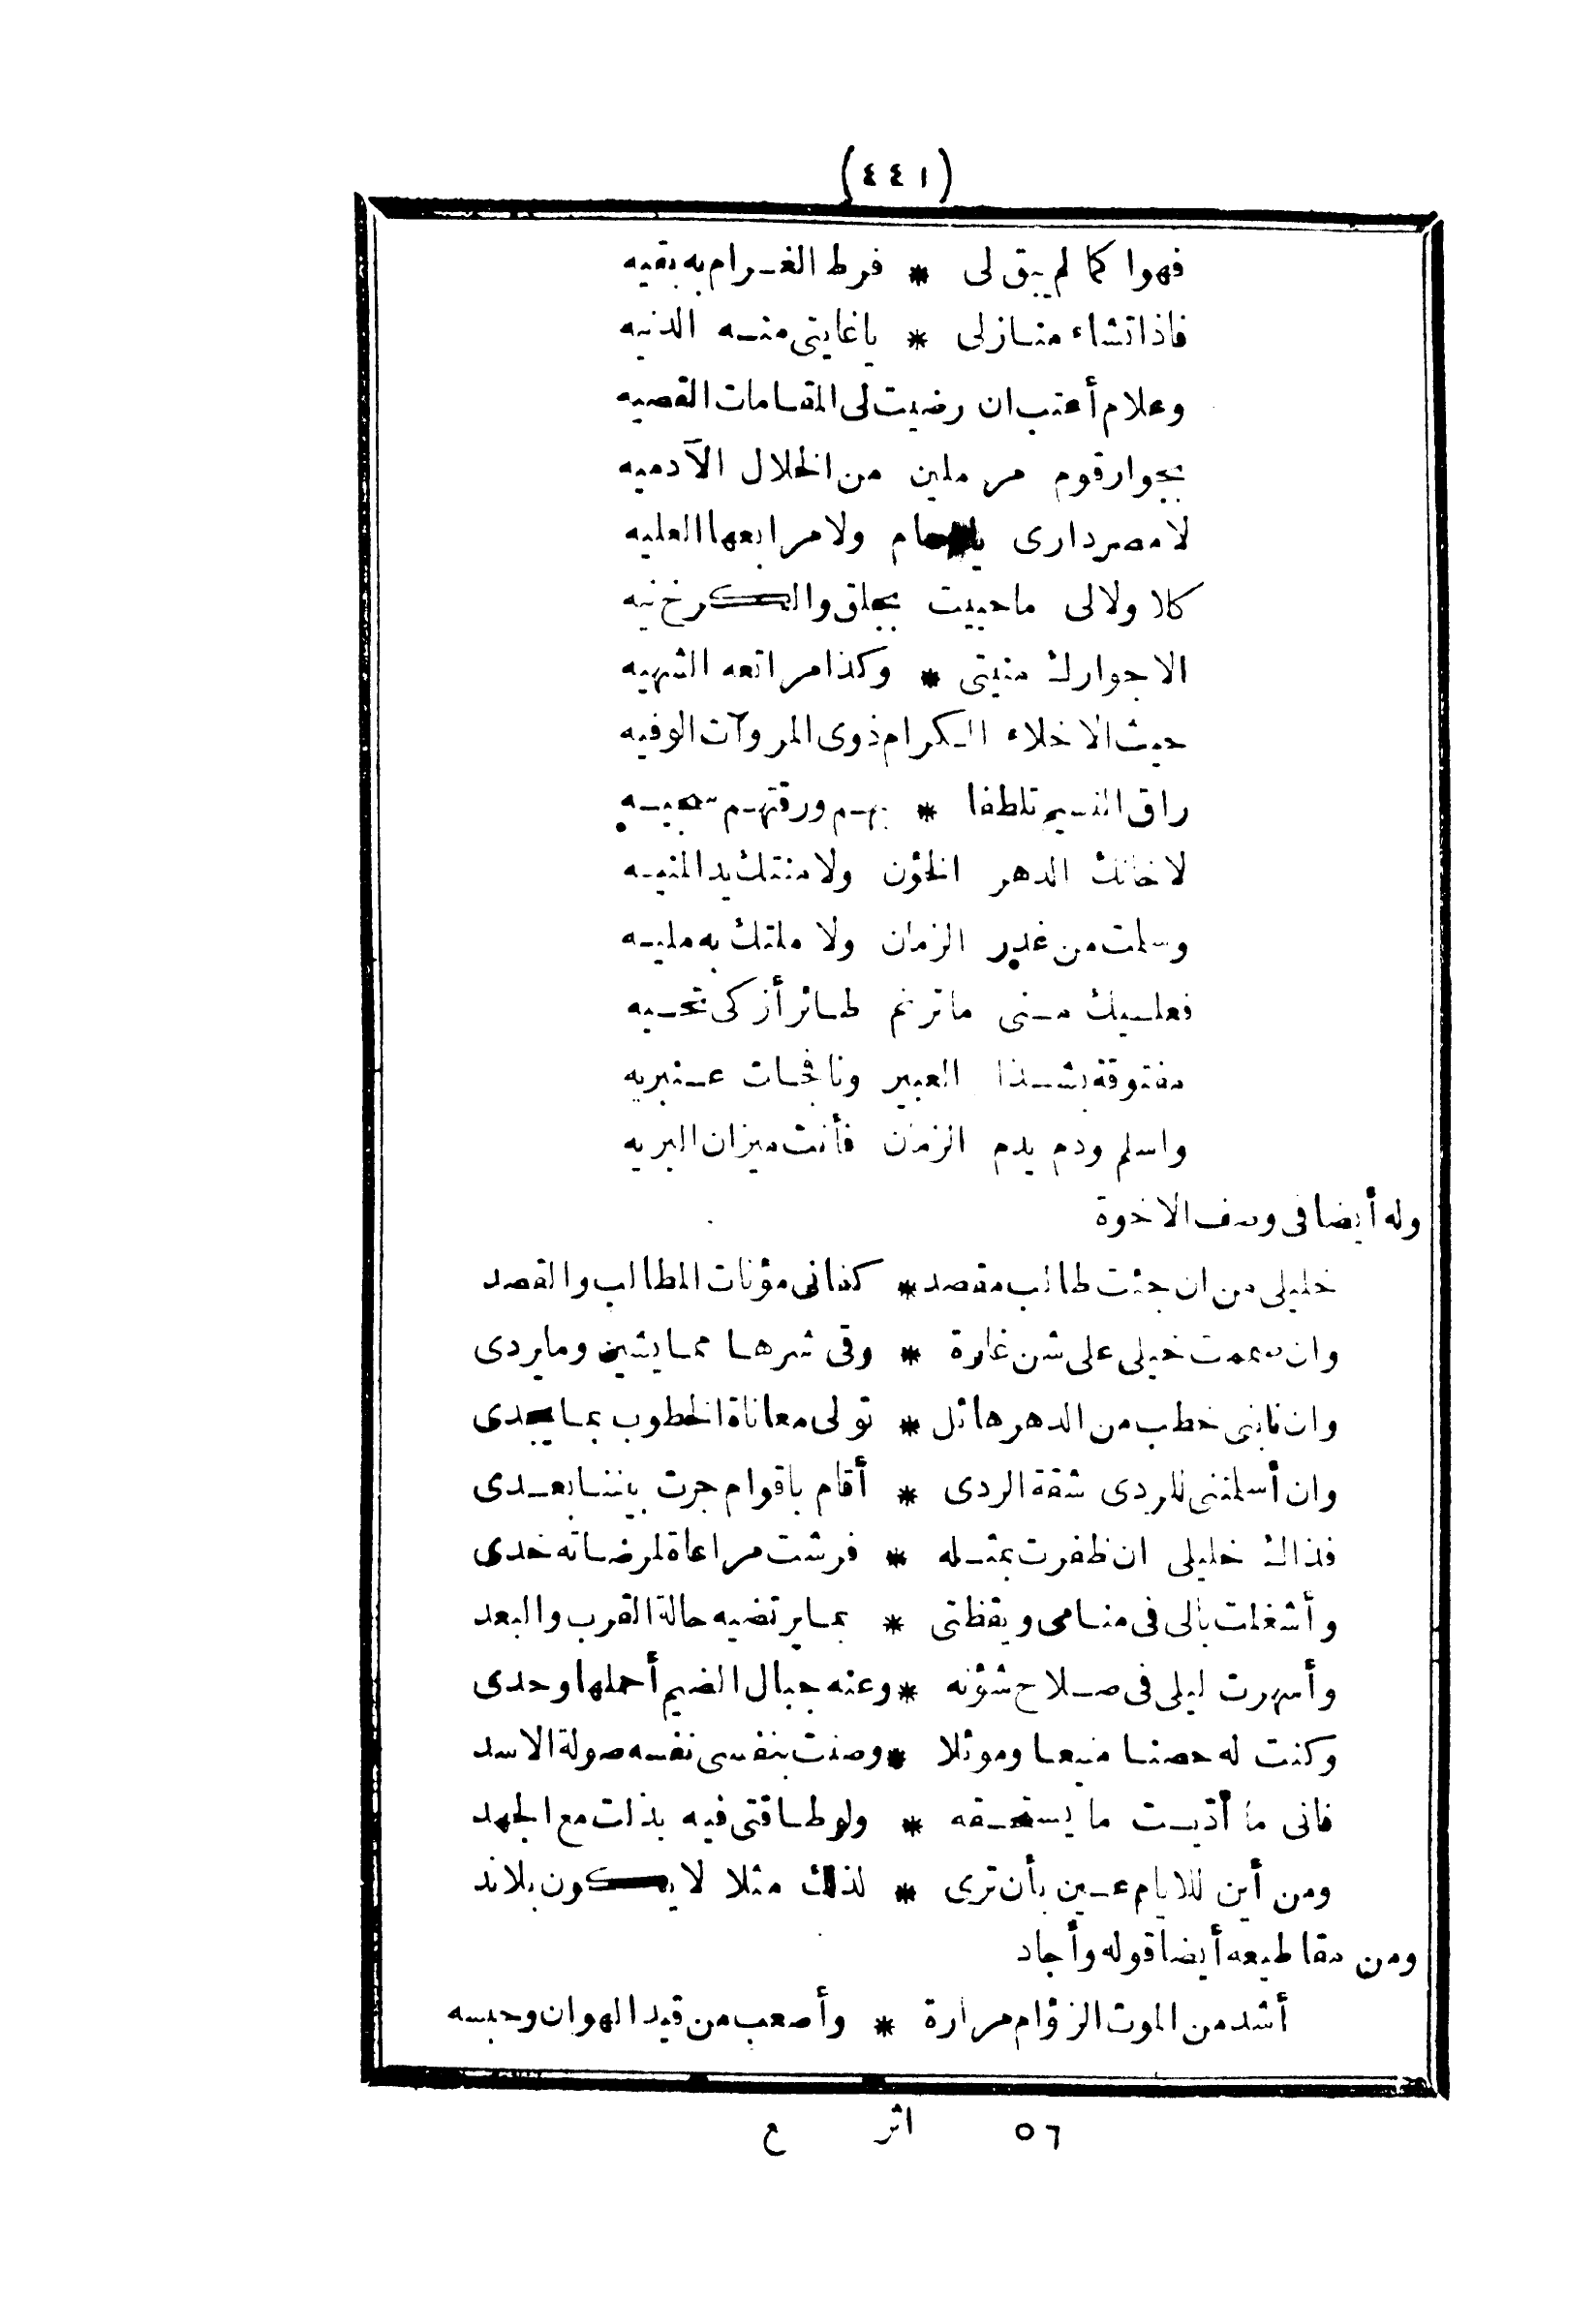 (٤٤١)
فهوا كما لم يبق لى * فرط الغرام به بقيه
فاذا تشاء منازلى * يا غايتى منه الدنيه
وعلام أعتب ان رضيت لى المقامات القصيه
بجوار قوم مرملين من الخلال الآدميه
لا مصر دارى ولا مرابعها العليه
كلا ولا لى ما حييت بجلق والكرخ نيه
الا جوارك منيتى * وكذا مراتعه الشهيه
حيث الاخلاء الكرام ذوى المروآت الوفيه
راق النسيم تلطفا * بهم ورقتهم سجيه
لا خانك الدهر الخؤن ولا منتك يد المنيه
وسلمت من غدر الزمان ولا ملتك به مليه
فعليك منى ما ترنم طائر أزكى تحيه
مفتوقة بشذا العبير ونافحات عنبريه
واسلم ودم يدم الزمان فأنت ميزان البريه
وله أيضا فى وصف الاخوة
خليلى من ان جئت طالب مقصد * كفانى مؤنات المطالب والقصد
وان صممت خيلى على شن غارة * وقى شرها مما يشين وما يردى
وان نابنى خطب من الدهر هائل * تولى معاناة الخطوب بما يجدى
وان أسلمتنى للردى شقة الردى * أقام باقوام جرت بيننا بعدى
فذاك خليلى ان ظفرت بمثله * فرشت مراعاة لمرضاته خدى
وأشغلت بالى فى منامى ويقظتى * بما يرتضيه حالة القرب والبعد
وأسهرت ليلى فى صلاح شؤنه * وعنه جبال الضيم أحملها وحدى
وكنت له حصنا منيعا وموئلا * وصنت بنفسى نفسه صولة الاسد
فانى ما أديت ما يستحقه * ولو طاقتى فيه بذلت مع الجهد
ومن أين للايام عين بأن ترى * لذلك مثلا لا يكون بلا ند
ومن مقاطيعه أيضا قوله وأجاد
أشد من الموت الزؤام مرارة * وأصعب من قيد الهوان وحبسه
٥٦ اثر ع